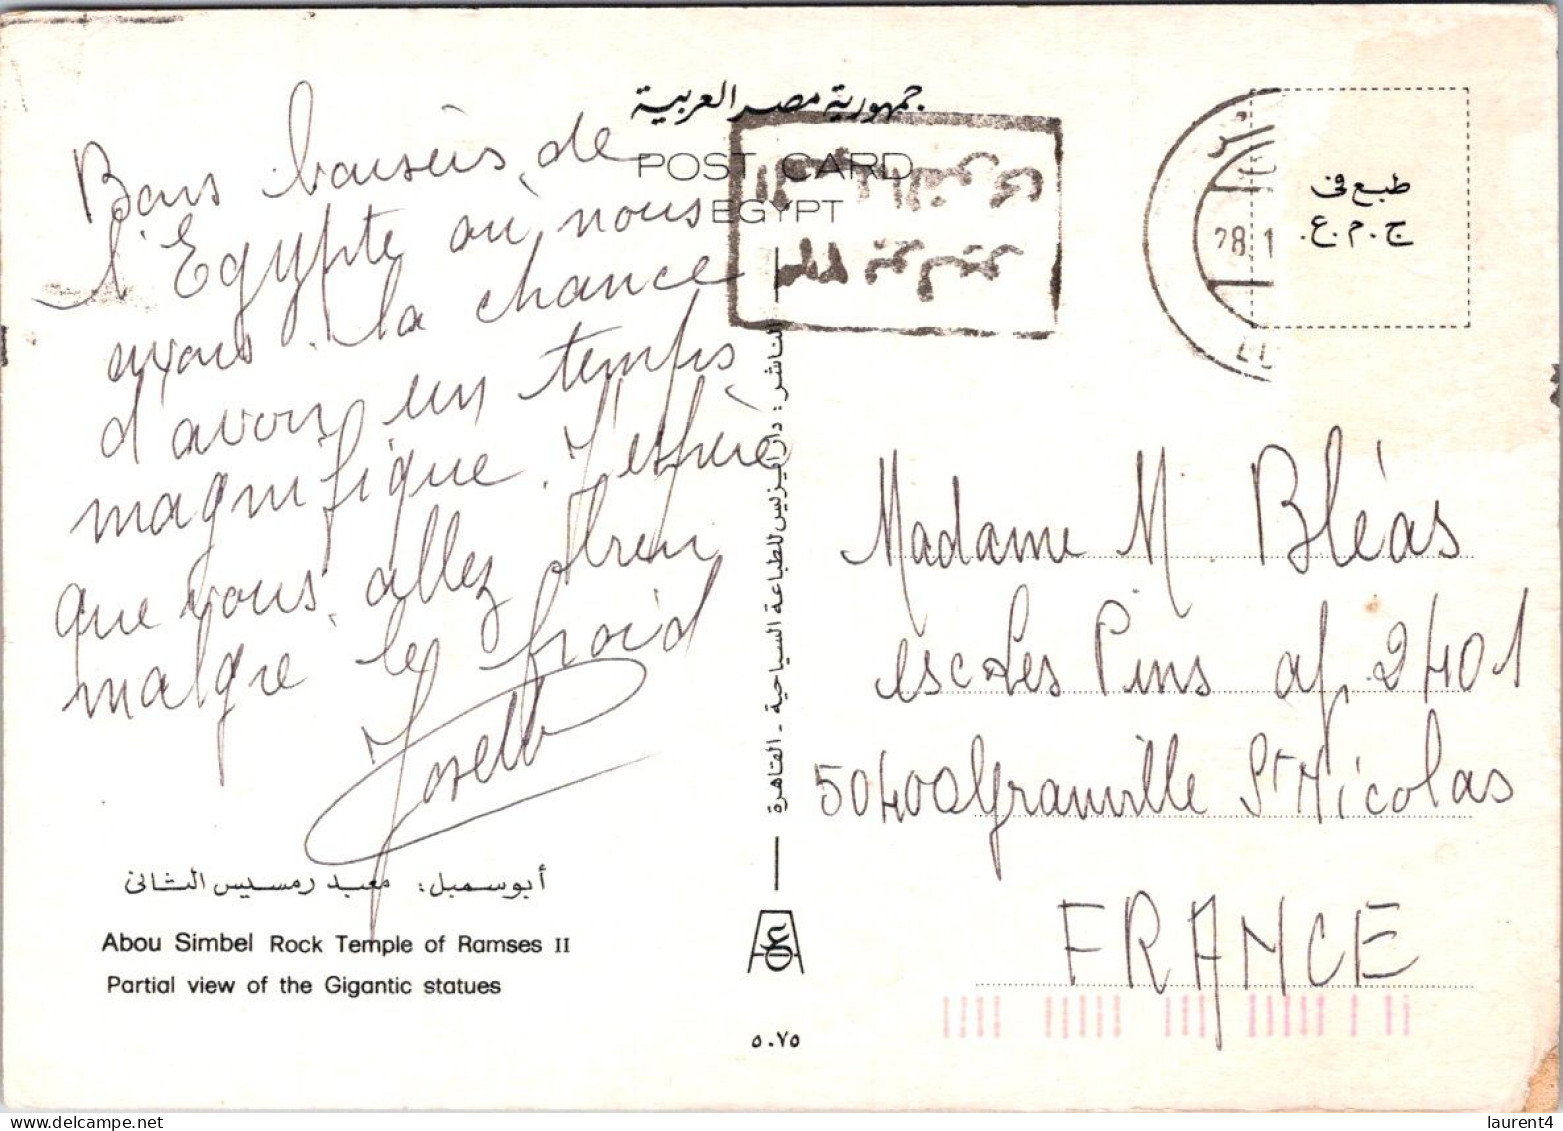 جمهورية مصر العربية
POST CARD
EGYPT
Bons baisers de
l'Egypte où nous
avons la chance
d'avoir un temps
magnifique. J'espère
que vous allez bien
malgré le froid
أبوسمبل: معبد رمسيس الثانى
Abou Simbel Rock Temple of Ramses II
Partial view of the Gigantic statues
الناشر: دار لينرت للطباعة السياحية - القاهرة
٥٠٧٥
28.1
طبع فى
ج.م.ع.
Madame M. Bléas
Les Pins ap 2401
50400 Granville St Nicolas
FRANCE
laurent4